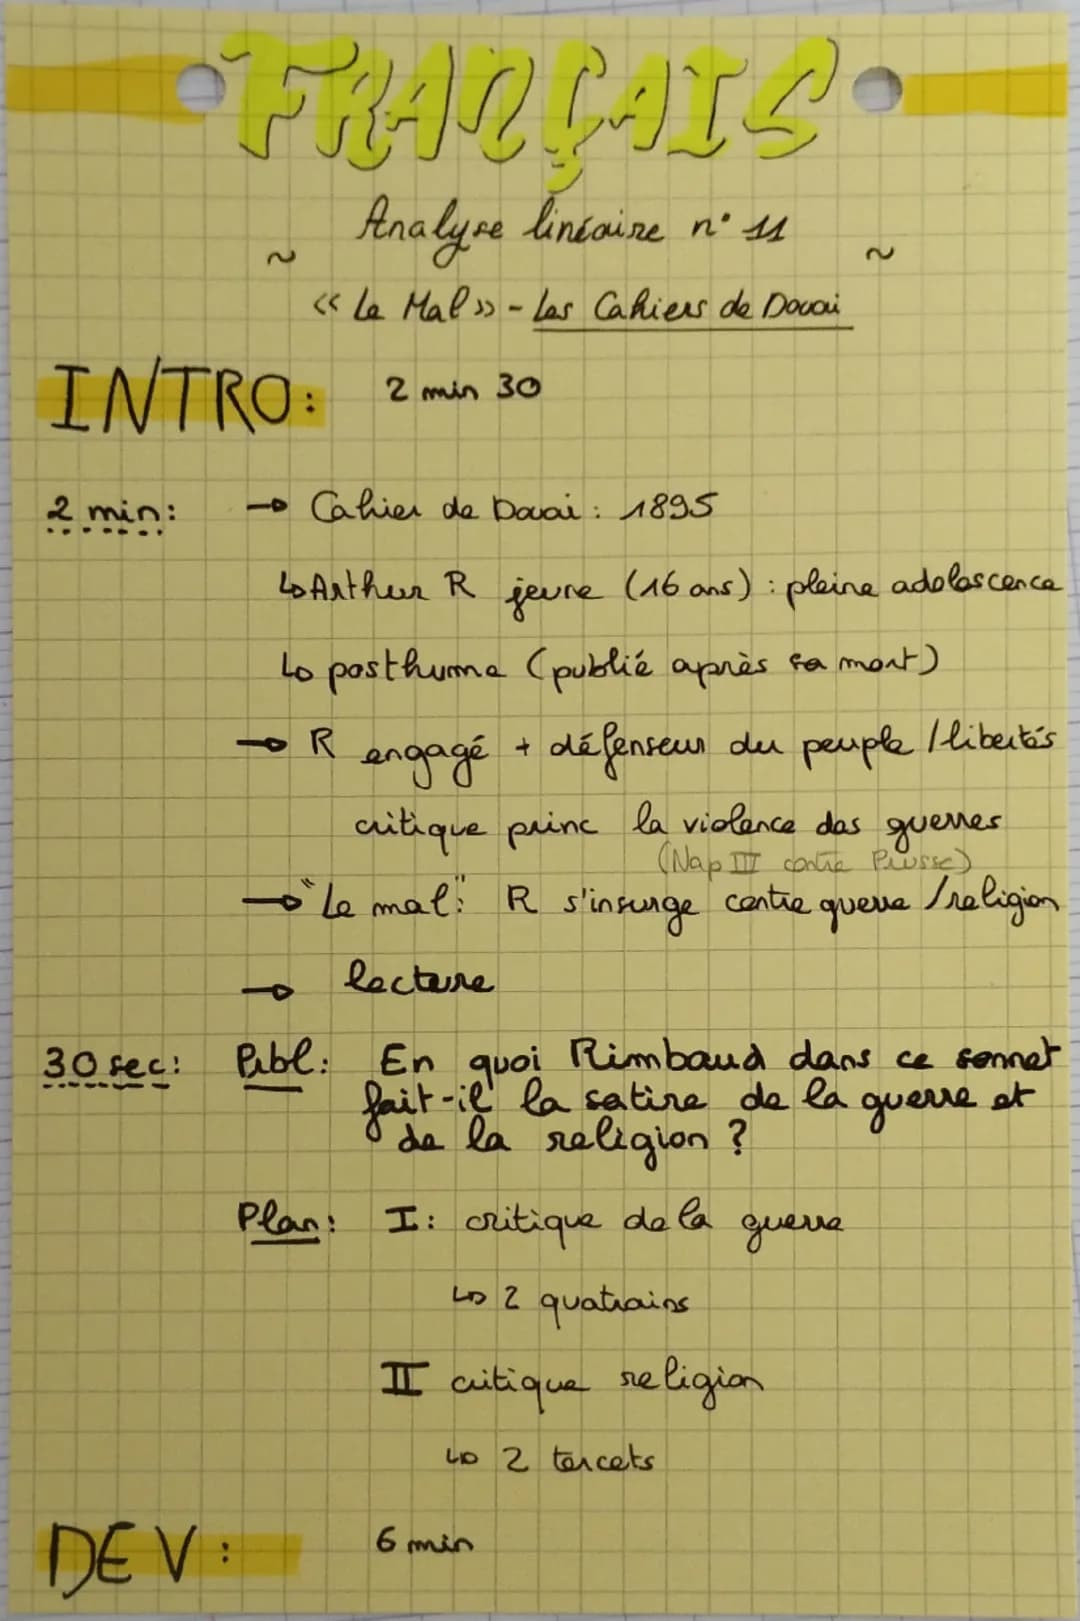 FRANÇAIS
~ Analyse linéaire n° 11 ~
« Le Mal » - Les Cahiers de Douai
INTRO: 2 min 30
2 min: → Cahier de Douai : 1895
↳ Arthur R jeune (16 ans) : pleine adolescence
↳ posthume (publié après sa mort)
→ R engagé + défenseur du peuple / libertés
critique princ la violence des guerres
(Nap III contre Prusse)
→ "Le mal": R s'insurge contre guerre / religion
→ lecture
30 sec: Pibl: En quoi Rimbaud dans ce sonnet
fait-il la satire de la guerre et
de la religion ?
Plan: I: critique de la guerre
↳ 2 quatrains
II critique religion
↳ 2 tercets
DEV: 6 min